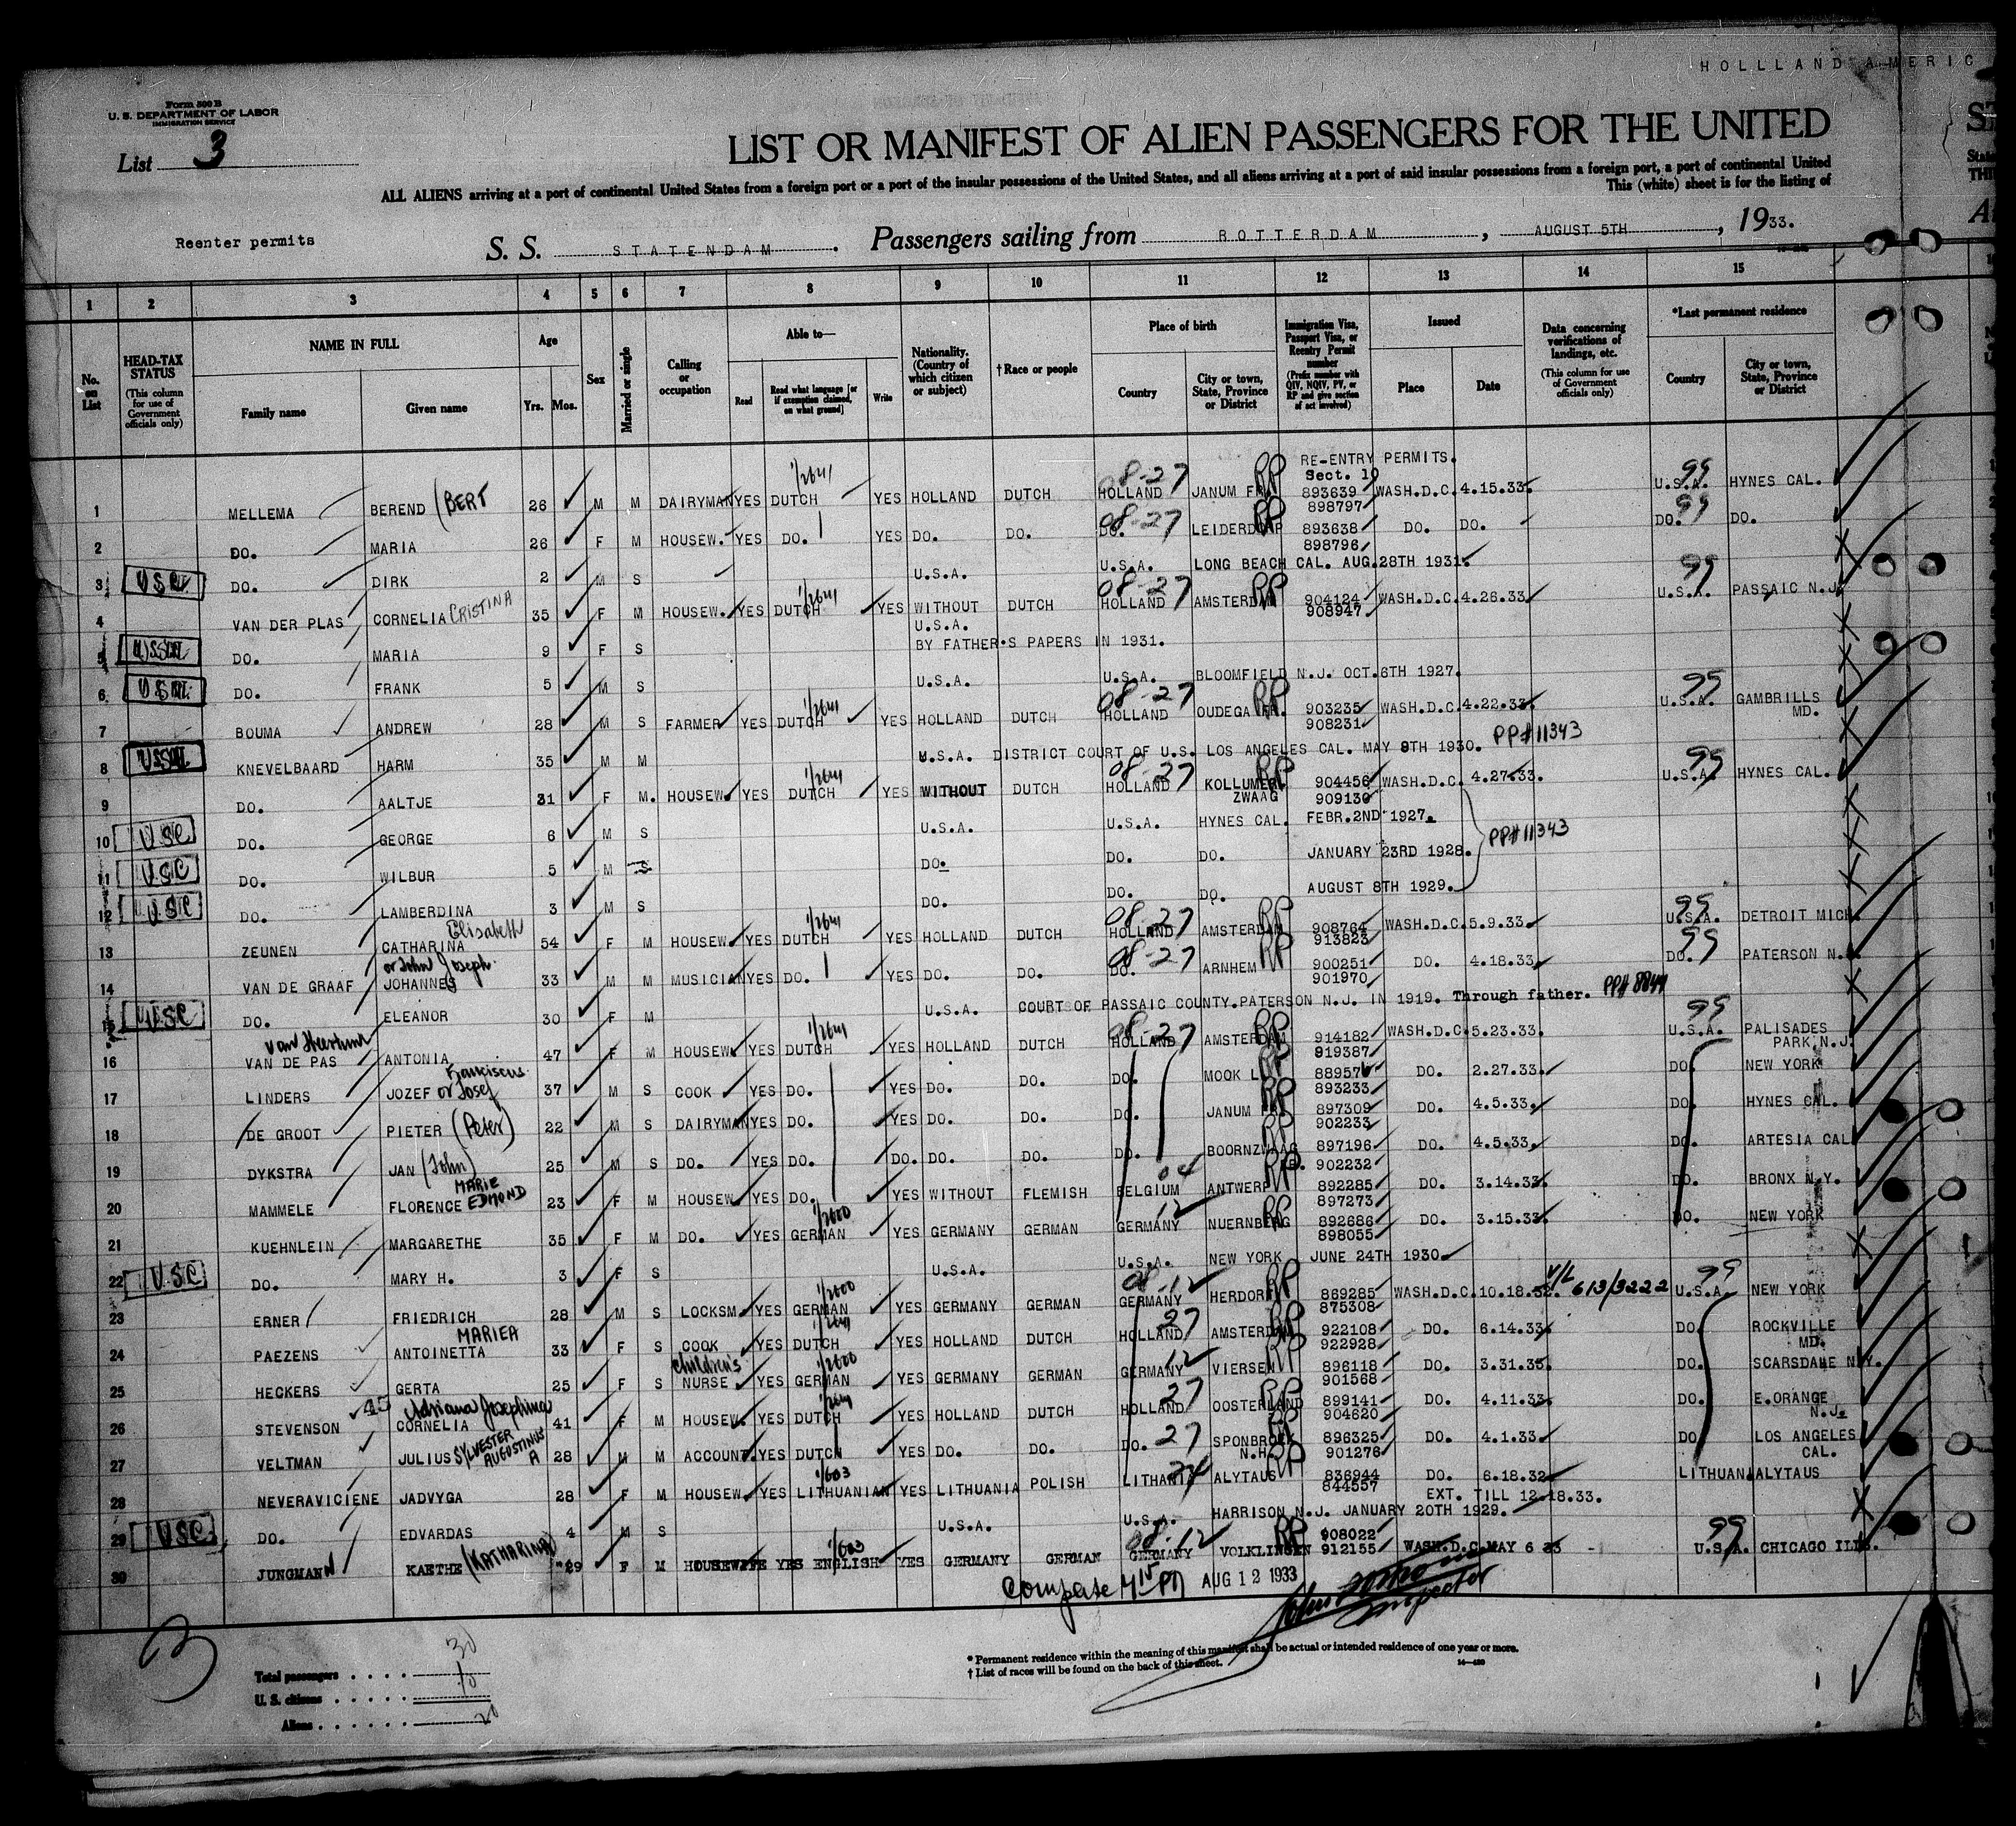 HOLLLAND AMERIC
Form 500 B
U. S. DEPARTMENT OF LABOR
IMMIGRATION SERVICE
List 3
LIST OR MANIFEST OF ALIEN PASSENGERS FOR THE UNITED
ALL ALIENS arriving at a port of continental United States from a foreign port or a port of the insular possessions of the United States, and all aliens arriving at a port of said insular possessions from a foreign port, a port of continental United
This (white) sheet is for the listing of
Reenter permits
S. S. STATENDAM. Passengers sailing from ROTTERDAM, AUGUST 5TH, 1933.
1 2 3 4 5 6 7 8 9 10 11 12 13 14 15
No. on List
HEAD-TAX STATUS (This column for use of Government officials only)
NAME IN FULL Family name Given name
Age Yrs. Mos.
Sex
Married or single
Calling or occupation
Able to— Read Read what language [or if exemption claimed, on what ground] Write
Nationality. (Country of which citizen or subject)
† Race or people
Place of birth Country City or town, State, Province or District
Immigration Visa, Passport Visa, or Reentry Permit number (Prefix number with QIV, NQIV, PV, or RP and give section of act involved)
Issued Place Date
Data concerning verifications of landings, etc. (This column for use of Government officials only)
*Last permanent residence Country City or town, State, Province or District
RE-ENTRY PERMITS.
Sect. 10
1 MELLEMA BEREND (BERT 26 M M DAIRYMAN YES DUTCH YES HOLLAND DUTCH 08-27 HOLLAND JANUM FR. RP 893639 898797 WASH.D.C. 4.15.33. 99 U.S.A. HYNES CAL.
2 DO. MARIA 26 F M HOUSEW. YES DO. YES DO. DO. 08-27 DO. LEIDERDORP RP 893638 898796 DO. DO. 99 DO. DO.
3 USC DO. DIRK 2 M S U.S.A. U.S.A. LONG BEACH CAL. AUG.28TH 1931.
4 VAN DER PLAS CORNELIA CRISTINA 35 F M HOUSEW. YES DUTCH YES WITHOUT DUTCH 08-27 HOLLAND AMSTERDAM RP 904124 908947 WASH.D.C. 4.26.33. 99 U.S.A. PASSAIC N.J.
5 DO. MARIA 9 F S U.S.A. BY FATHER.S PAPERS IN 1931.
6 DO. FRANK 5 M S U.S.A. U.S.A. BLOOMFIELD N.J. OCT.6TH 1927.
7 BOUMA ANDREW 28 M S FARMER YES DUTCH YES HOLLAND DUTCH 08-27 HOLLAND OUDEGA FR. RP 903235 908231 WASH.D.C. 4.22.33. 99 U.S.A. GAMBRILLS MD.
8 KNEVELBAARD HARM 35 M M U.S.A. DISTRICT COURT OF U.S. LOS ANGELES CAL. MAY 9TH 1930. PP#11343
9 DO. AALTJE 31 F M. HOUSEW. YES DUTCH YES WITHOUT DUTCH 08-27 HOLLAND KOLLUMER ZWAAG RP 904456 909130 WASH.D.C. 4.27.33. 99 U.S.A. HYNES CAL.
10 USC DO. GEORGE 6 M S U.S.A. U.S.A. HYNES CAL. FEBR.2ND 1927. PP#11343
11 USC DO. WILBUR 5 M S DO. DO. DO. JANUARY 23RD 1928.
12 USC DO. LAMBERDINA 3 M S DO. DO. DO. AUGUST 8TH 1929.
13 ZEUNEN CATHARINA Elisabeth 54 F M HOUSEW. YES DUTCH YES HOLLAND DUTCH 08-27 HOLLAND AMSTERDAM RP 908764 913823 WASH.D.C. 5.9.33. 99 U.S.A. DETROIT MICH.
14 VAN DE GRAAF JOHANNES or John Joseph. 33 M M MUSICIAN YES DO. YES DO. DO. 08-27 DO. ARNHEM RP 900251 901970 DO. 4.18.33. 99 DO. PATERSON N.J.
15 USC DO. ELEANOR 30 F M U.S.A. COURT OF PASSAIC COUNTY.PATERSON N.J. IN 1919. Through father.
16 VAN DE PAS ANTONIA 47 F M HOUSEW. YES DUTCH YES HOLLAND DUTCH 08-27 HOLLAND AMSTERDAM RP 914182 919387 WASH.D.C. 5.23.33. 99 U.S.A. PALISADES PARK N.J.
17 LINDERS JOZEF or Josef Franciscus 37 M S COOK YES DO. YES DO. DO. DO. MOOK RP 893233 DO. 2.27.33. DO. NEW YORK
18 DE GROOT PIETER (Peter) 22 M S DAIRYMAN YES DO. YES DO. DO. DO. JANUM RP 897309 902233 DO. 4.5.33. DO. HYNES CAL.
19 DYKSTRA JAN (John) 25 M S DO. YES DO. DO. DO. DO. DO. BOORNZWAAG RP 897196 902232 DO. 4.5.33. DO. ARTESIA CAL
20 MAMMELE FLORENCE MARIE EDMOND 23 F M HOUSEW. YES DO. YES WITHOUT FLEMISH 04 BELGIUM ANTWERP RP 892285 897273 DO. 3.14.33. DO. BRONX N.Y.
21 KUEHNLEIN MARGARETHE 35 F M DO. YES GERMAN YES GERMANY GERMAN 12 GERMANY NUERNBERG RP 892686 898055 DO. 3.15.33. DO. NEW YORK
22 USC DO. MARY H. 3 F S U.S.A. U.S.A. NEW YORK JUNE 24TH 1930.
23 ERNER FRIEDRICH 28 M S LOCKSM. YES GERMAN YES GERMANY GERMAN 08-12 GERMANY HERDORF RP 869285 875308 WASH.D.C. 10.18.32. V/L 613/3222 99 U.S.A. NEW YORK
24 PAEZENS ANTOINETTA MARIEA 33 F S COOK YES DUTCH YES HOLLAND DUTCH 27 HOLLAND AMSTERDAM RP 922108 922928 DO. 6.14.33. DO. ROCKVILLE MD.
25 HECKERS GERTA 25 F S children's NURSE YES GERMAN YES GERMANY GERMAN 12 GERMANY VIERSEN RP 896118 901568 DO. 3.31.33. DO. SCARSDALE N.Y.
26 STEVENSON CORNELIA Adriana Josephina 41 F M HOUSEW. YES DUTCH YES HOLLAND DUTCH 27 HOLLAND OOSTERLAND RP 899141 904620 DO. 4.11.33. DO. E.ORANGE N.J.
27 VELTMAN JULIUS SYLVESTER AUGUSTINUS A 28 M M ACCOUNT. YES DUTCH YES DO. DO. DO. 27 SPONBROEK N.H. RP 896325 901276 DO. 4.1.33. DO. LOS ANGELES CAL.
28 NEVERAVICIENE JADVYGA 28 F M HOUSEW. YES LITHUANIAN YES LITHUANIA POLISH LITHANIA ALYTAUS RP 836944 844557 DO. 6.18.32. EXT. TILL 12.18.33. LITHUAN. ALYTAUS
29 USC DO. EDVARDAS 4 M S U.S.A. U.S.A. HARRISON N.J. JANUARY 20TH 1929.
30 JUNGMANN KAETHE (KATHARINA) 29 F M HOUSEWIFE YES ENGLISH YES GERMANY GERMAN 08-12 GERMANY VOLKLINGEN RP 908022 912155 WASH.D.C. MAY 6 33 - 99 U.S.A. CHICAGO ILLS.
AUG 12 1933
Inspector
3
* Permanent residence within the meaning of this manifest shall be actual or intended residence of one year or more.
† List of races will be found on the back of this sheet.
Total passengers . . . . 30
U. S. citizens . . . . . 10
Aliens . . . . . . 20